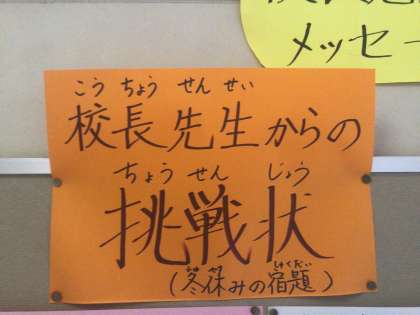 メッセー
こうちょうせんせい
校長先生からの
ちょうせんじょう
挑戦状
ふゆやす しゅくだい
(冬休みの宿題)